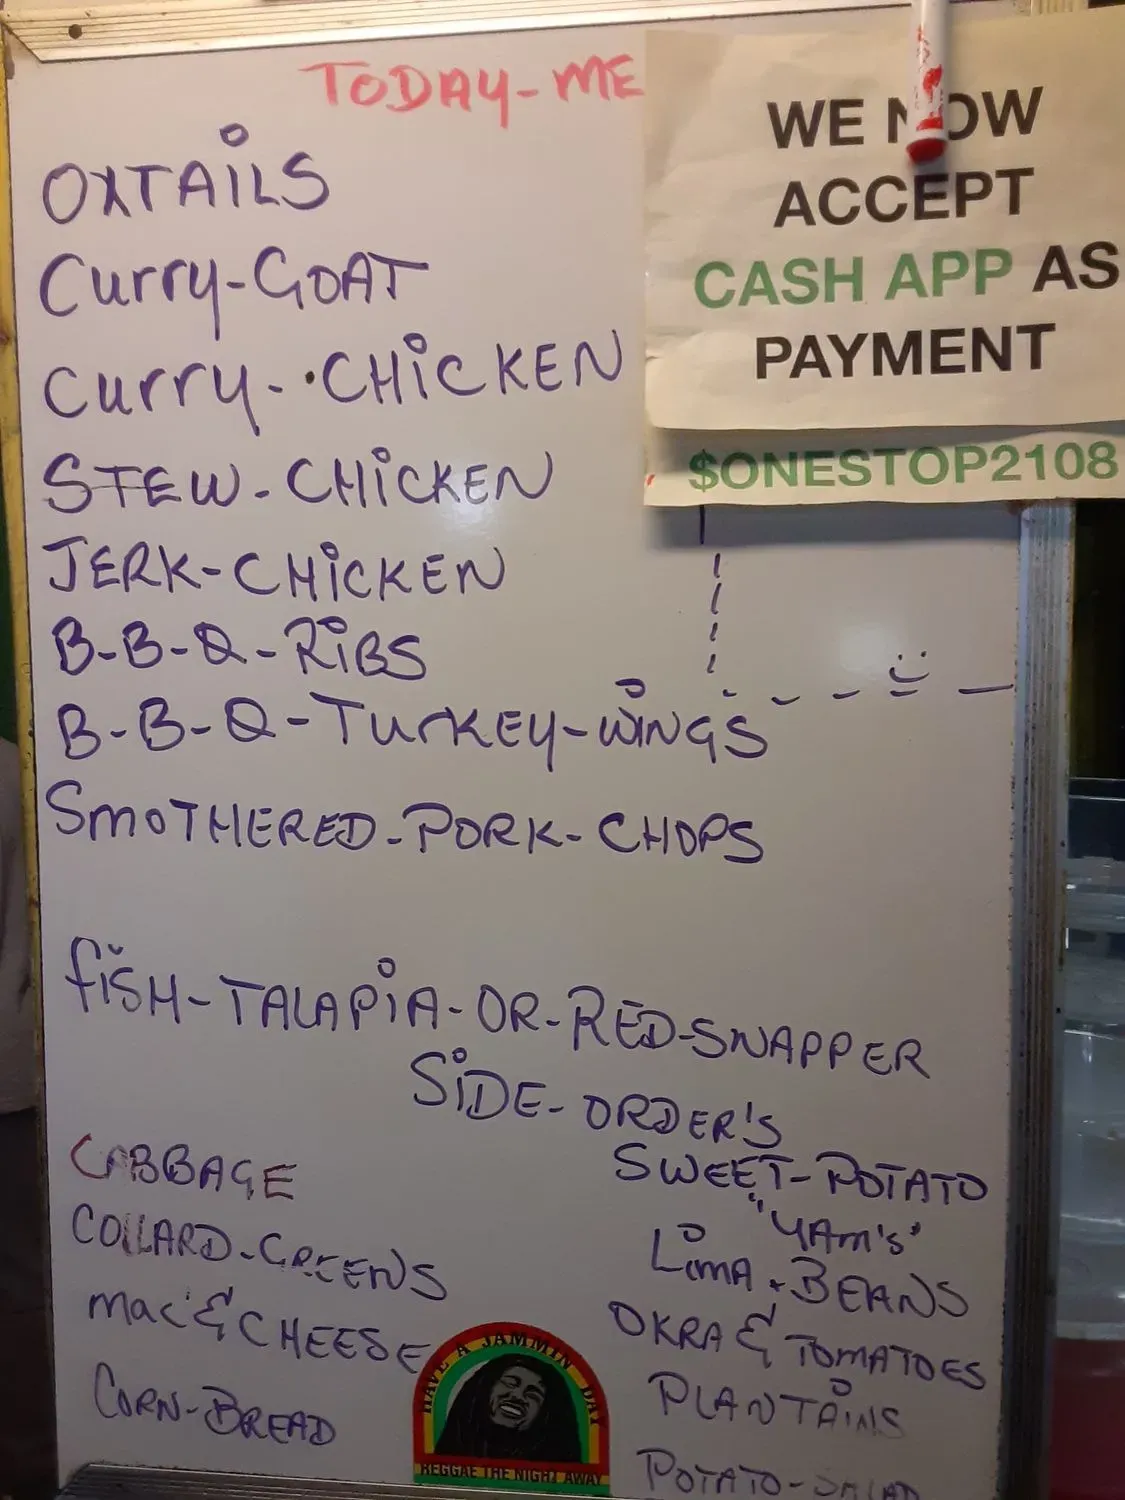 TODAY-ME
OXTAiLS
Curry-GOAT
Curry-CHiCKEN
STEW-CHiCKEN
JERK-CHiCKEN
B-B-Q-RiBS
B-B-Q-TurKEy-WiNGS
SmOTHERED-PORK-CHOPS
fiSH-TALAPiA-OR-RED-SNAPPER
SiDE-ORDER'S
CABBAGE
COLLARD-GREENS
mac & CHEESE
CORN-BREAD
SWEET-POTATO
"YAm's"
LimA-BEANS
OKRA & TOMATOES
PLANTAiNS
POTATO-SALAD
WE NOW
ACCEPT
CASH APP AS
PAYMENT
$ONESTOP2108
HAVE A JAMMIN DAY
REGGAE THE NIGHT AWAY